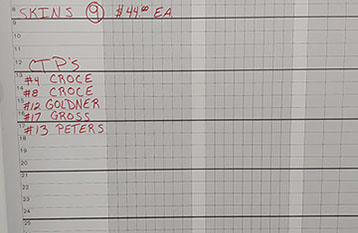 8 SKINS 9 $44.00 EA
9
10
11
12 CTP's
13
14 #4 CROCE
#8 CROCE
15 #12 GOLDNER
16 #17 GROSS
17 #13 PETERS
18
19
20
21
22
23
24
25